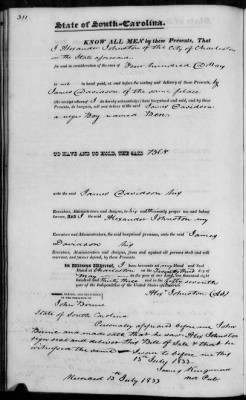 311
State of South-Carolina.
KNOW ALL MEN by these Presents, That
I Alexander Johnston of the City of Charleston
in the State aforesaid
for and in consideration of the sum of Four hundred Dollars
to me in hand paid, at and before the sealing and delivery of these Presents, by
James Davidson of the same place
(the receipt whereof I do hereby acknowledge) have bargained and sold, and by these
Presents, do bargain, sell and deliver to the said James Davidson
a negro Boy named Ben
TO HAVE AND TO HOLD, THE SAID Boy
unto the said James Davidson his
Executors, Administrators and Assigns, to his
forever. And I the said Alexander Johnston my
Executors and Administrators, the said bargained premises, unto the said James
Davidson his
Executors, Administrators and Assigns, from and against all persons shall and will
warrant, and forever defend, by these Presents.
In Witness Whereof, I have hereunto set my Hand and Seal
Dated at Charleston on the
May in the year of our Lord, one thousand eight
hundred and thirty three and in the fifty seventh
year of the Independence of the United States of America.
Alexr Johnston (LS)
John
State of South Carolina
Personally appeared before me John
and made oath that he saw Alexr Johnston
sign seal and deliver this Bill of Sale & that he
witnessed the same Sworn to before me this
15th July 1833
James Kingman
Not Pub
Recorded 15th July 1833